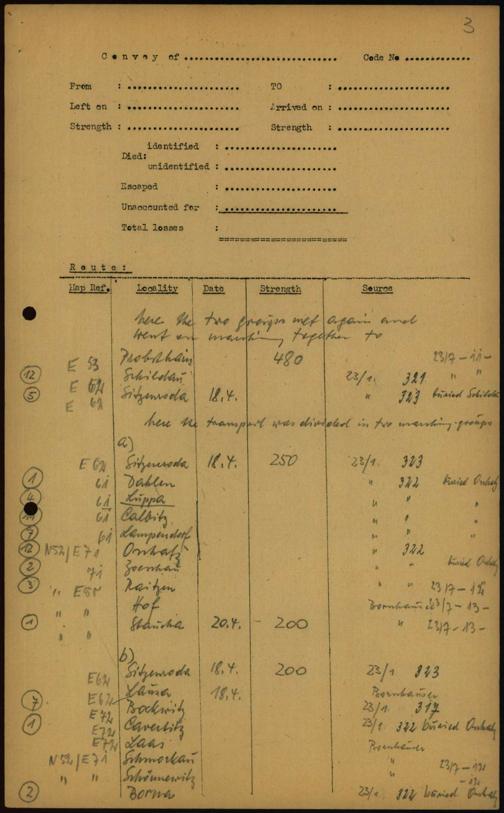 3
Convoy of .................... Code No ............
From : .................... TO : ....................
Left on : .................... Arrived on : ....................
Strength : .................... Strength : ....................
identified : ....................
Died:
unidentified : ....................
Escaped : ....................
Unaccounted for : ....................
Total losses :
Route:
Map Ref. Locality Date Strength Source
here the two groups met again and
went on marching together to
E 53 Probsthain 480 23/7 - 11 -
12 E 62 Schildau 23/1. 321 " "
5 E 62 Sitzenroda 18.4. " 323 buried Schildau
here the transport was divided in two marching groups
a)
E 62 Sitzenroda 18.4. 250 23/1. 323
1 61 Dahlen " 322 buried Oschatz
4 61 Luppa " "
11 61 Calbitz " "
7 61 Lampersdorf " "
12 N52/E71 Oschatz " 322
2 71 Zoeschau " " buried Oschatz
3 " E 81 Raitzen " 23/7 - 12
" " Hof Bornhäuser 23/7 - 13 -
1 " " Staucha 20.4. - 200 " 23/7 - 13 -
b)
E62 Sitzenroda 18.4. 200 23/1 323
E62 Lausa 18.4. Bornhäuser
7 E72 Bockwitz 23/1. 317
1 E72 Cavertitz 23/1. 322 buried Oschatz
E72 Laas Bornhäuser
N52/E71 Schmorkau " 23/7 - 12
" " Schönnewitz " - 12 -
2 Borna 23/1. 322 buried Oschatz